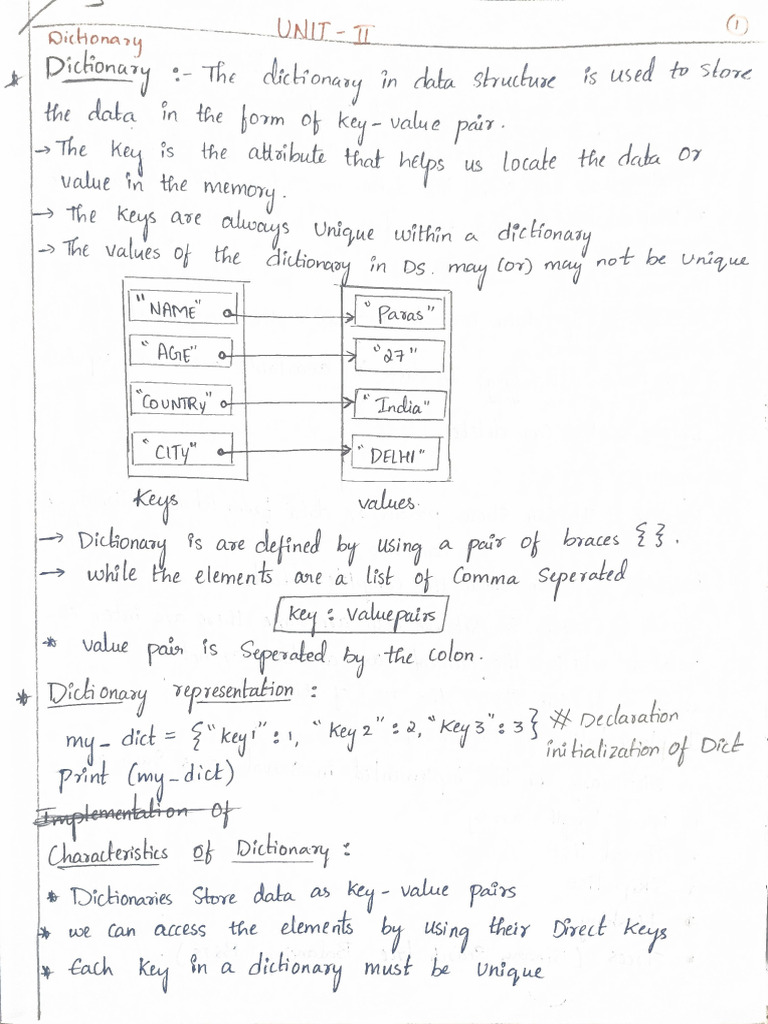 UNIT - II
①
Dictionary
* Dictionary :- The dictionary in data structure is used to store
the data in the form of key-value pair.
→ The key is the attribute that helps us locate the data or
value in the memory.
→ The keys are always unique within a dictionary
→ The values of the dictionary in Ds. may (or) may not be unique
"NAME" "Paras"
"AGE" "27"
"COUNTRY" "India"
"CITY" "DELHI"
Keys values
→ Dictionary is are defined by using a pair of braces {}.
→ while the elements are a list of Comma Seperated
Key : valuepairs
* value pair is Seperated by the colon.
* Dictionary representation :
my_dict = {"key1" : 1, "Key2" : 2, "Key3" : 3} # Declaration
initialization of Dict
Print (my_dict)
Implementation of
Characteristics of Dictionary :
* Dictionaries Store data as key-value pairs
* we can access the elements by using their Direct Keys
* Each Key in a dictionary must be unique